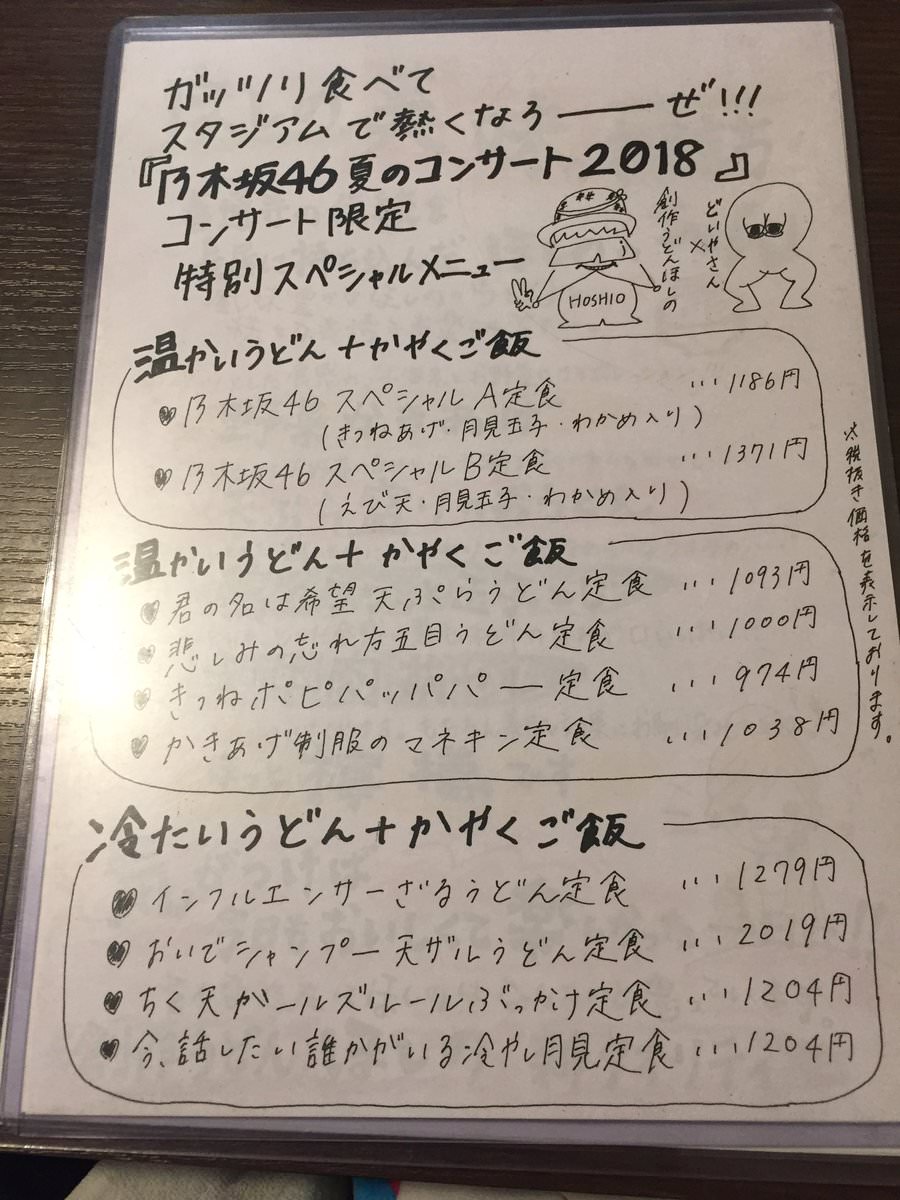 ガッツリ食べて
スタジアムで熱くなろ――ぜ!!!
『乃木坂46夏のコンサート2018』
コンサート限定
特別スペシャルメニュー
どいやさん
×
創作うどんほしの
HOSHIO
温かいうどん+かやくご飯
乃木坂46 スペシャル A定食 ...1186円
(きつねあげ・月見玉子・わかめ入り)
乃木坂46 スペシャルB定食 ...1371円
(えび天・月見玉子・わかめ入り)
※税抜き価格を表示しております。
温かいうどん+かやくご飯
君の名は希望 天ぷらうどん定食 ...1093円
悲しみの忘れ方五目うどん定食 ...1000円
きつねポピパッパパー定食 ...974円
かきあげ制服のマネキン定食 ...1038円
冷たいうどん+かやくご飯
インフルエンサーざるうどん定食 ...1279円
おいでシャンプー天ザルうどん定食 ...2019円
ちく天ガールズルールぶっかけ定食 ...1204円
今、話したい誰かがいる冷やし月見定食 ...1204円